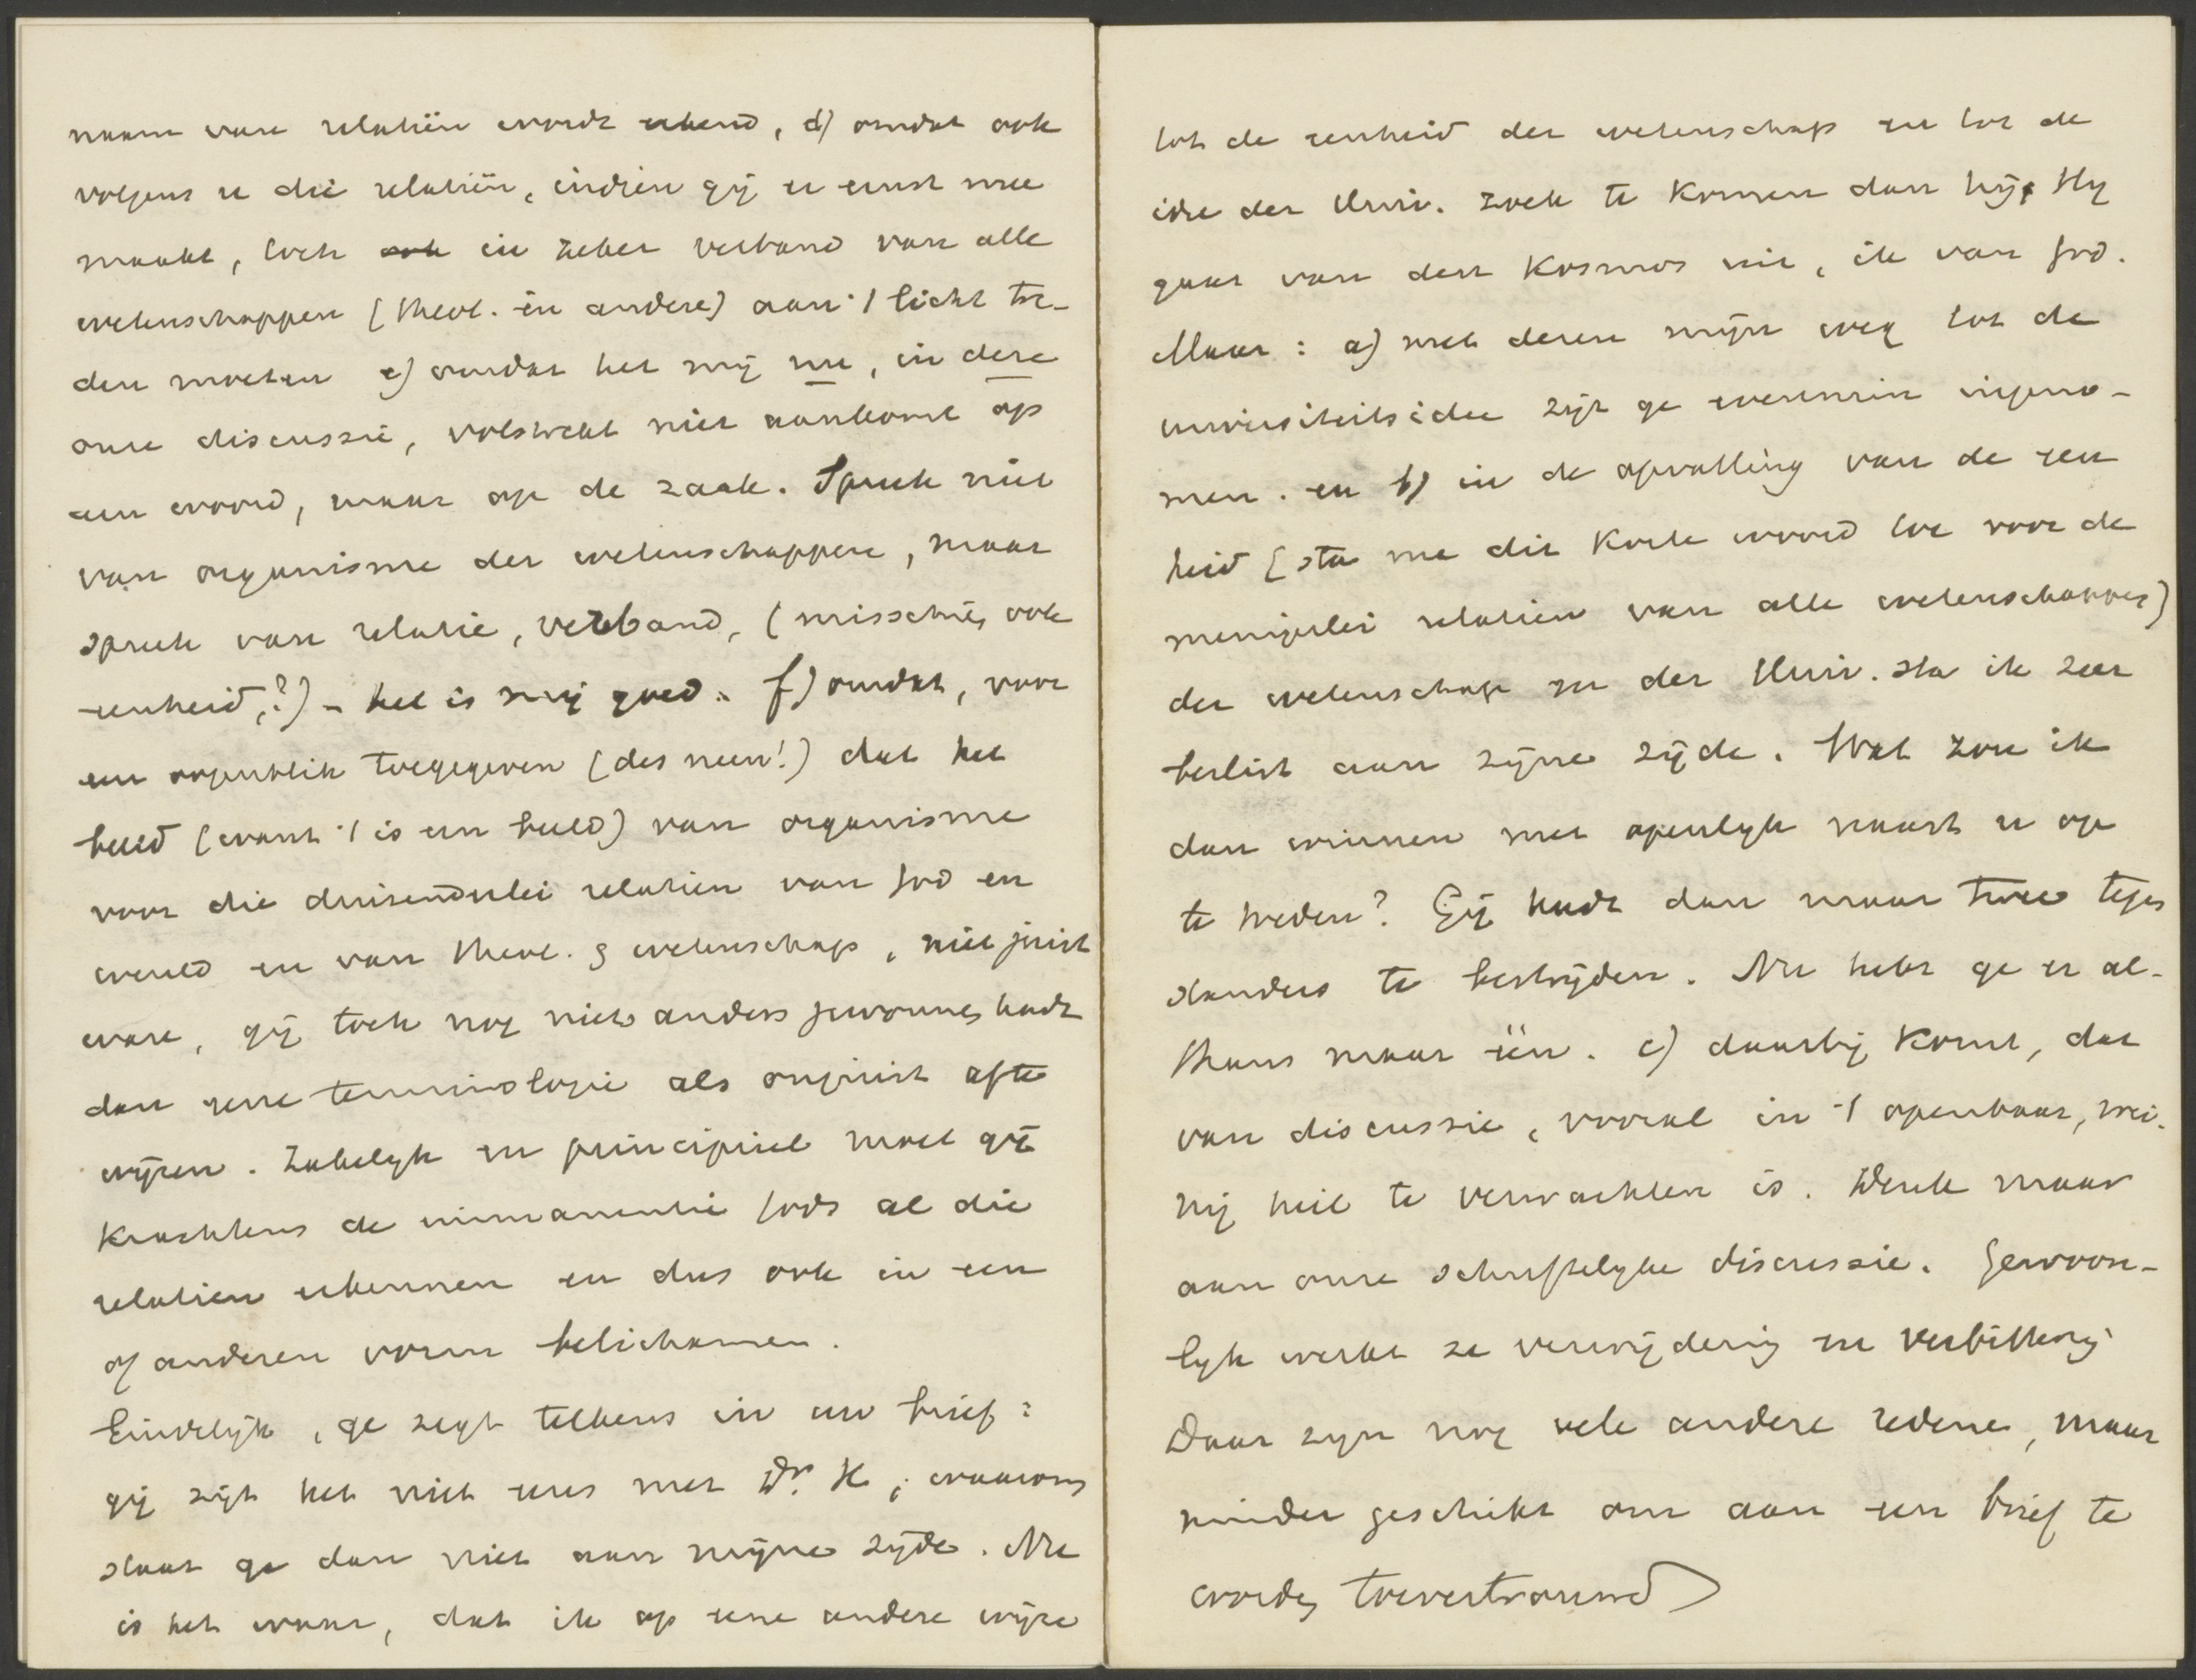 naam van relatiën wordt erkend, d) omdat ook
volgens u die relatiën, indien gij er ernst mee
maakt, toch ook in zeker verband van alle
wetenschappen (theol. en andere) aan 't licht tre-
den moeten e) omdat het mij nu, in deze
onze discussie, volstrekt niet aankomt op
een woord, maar op de zaak. Spreek niet
van organisme der wetenschappen, maar
spreek van relatie, verband, (misschien ook
eenheid,?) - het is mij goed. f) omdat, voor
een oogenblik toegegeven (des neen!) dat het
beeld (want 't is een beeld) van organisme
voor die duizenderlei relatien van God en
wereld en van theol. & wetenschap, niet juist
ware, gij toch nog niet anders gewonnen hadt
dan eene terminologie als onjuist af te
wijzen. Zakelijk en principieel moet gij
krachtens de immanentie Gods al die
relatien erkennen en dus ook in een
of anderen vorm belichamen.
Eindelijk, ge zegt telkens in uw brief:
gij zijt het niet eens met Dr. K; waarom
staat ge dan niet aan mijne zijde. Nu
is het waar, dat ik op eene andere wijze
tot de eenheid der wetenschap en tot de
idee der Univ. zoek te komen dan hij; Hij
gaat van den Kosmos uit, ik van God.
Maar: a) met dezen mijn weg tot de
universiteitsidee zijt ge evenmin ingeno-
men. en b) in de opvatting van de een
heid (sta me dit korte woord toe voor de
menigerlei relatien van alle wetenschappen)
der wetenschap en der Univ. sta ik zeer
beslist aan zijne zijde. Wat zou ik
dan winnen met openlijk naast u op
te treden? Gij hadt dan maar twee tegen
standers te bestrijden. Nu hebt ge er al-
thans maar één. c) daarbij komt, dat
van discussie, vooral in 't openbaar, wei-
nig heil te verwachten is. Denk maar
aan onze schriftelijke discussie. Gewoon-
lijk werkt ze verwijdering en verbittering
Daar zijn nog vele andere redenen, maar
minder geschikt om aan een brief te
worden toevertrouwd